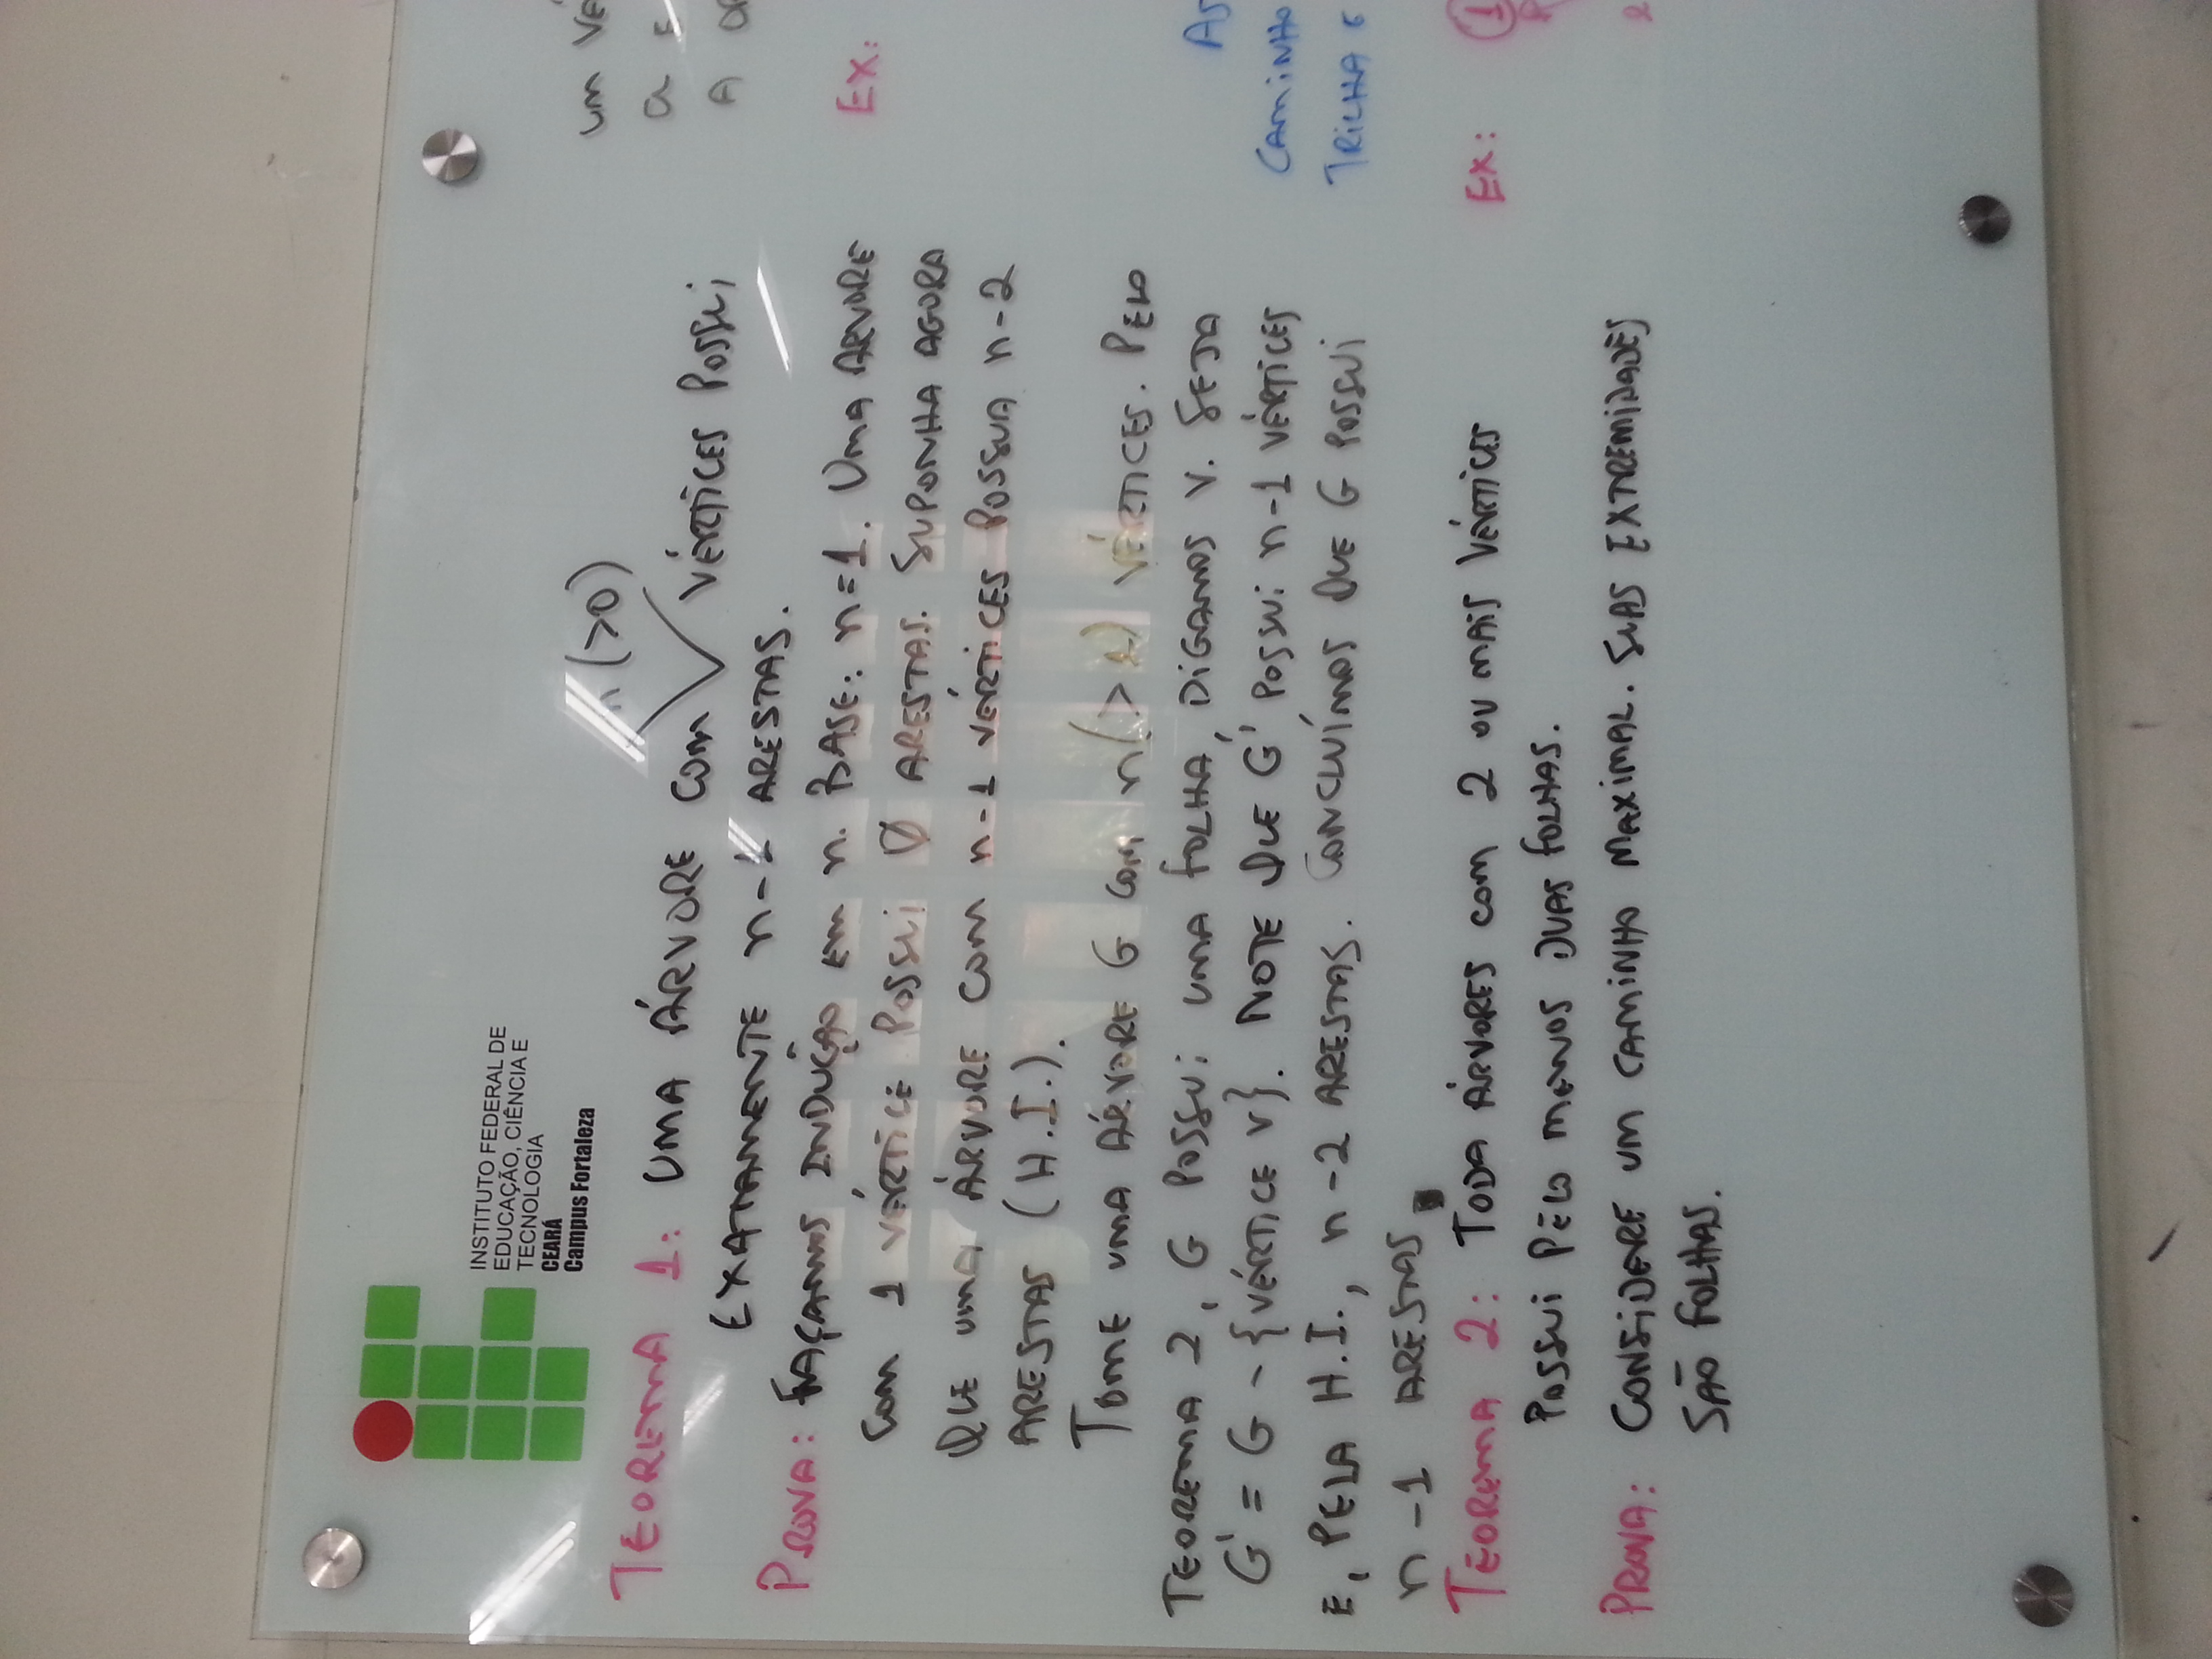 INSTITUTO FEDERAL DE
EDUCAÇÃO, CIÊNCIA E
TECNOLOGIA
CEARÁ
Campus Fortaleza
n (>0)
TEOREMA 1: UMA ÁRVORE COM VÉRTICES POSSUI
EXATAMENTE n-1 ARESTAS.
PROVA: FAÇAMOS INDUÇÃO EM n. BASE: n=1. UMA ÁRVORE
COM 1 VÉRTICE POSSUI 0 ARESTAS. SUPONHA AGORA
QUE UMA ÁRVORE COM n-1 VÉRTICES POSSUA n-2
ARESTAS (H.I.).
TOME UMA ÁRVORE G COM n(> ) VÉRTICES. PELO
TEOREMA 2, G POSSUI UMA FOLHA, DIGAMOS V. SEJA
G' = G - {VÉRTICE V}. NOTE QUE G' POSSUI n-1 VÉRTICES
E, PELA H.I., n-2 ARESTAS. CONCLUÍMOS QUE G POSSUI
n-1 ARESTAS.
TEOREMA 2: TODA ÁRVORES COM 2 OU MAIS VÉRTICES
POSSUI PELO MENOS DUAS FOLHAS.
PROVA: CONSIDERE UM CAMINHO MAXIMAL. SUAS EXTREMIDADES
SÃO FOLHAS.
UM VÉ
a E
A
EX:
AS
CAMINHO
TRILHA E
EX: 1